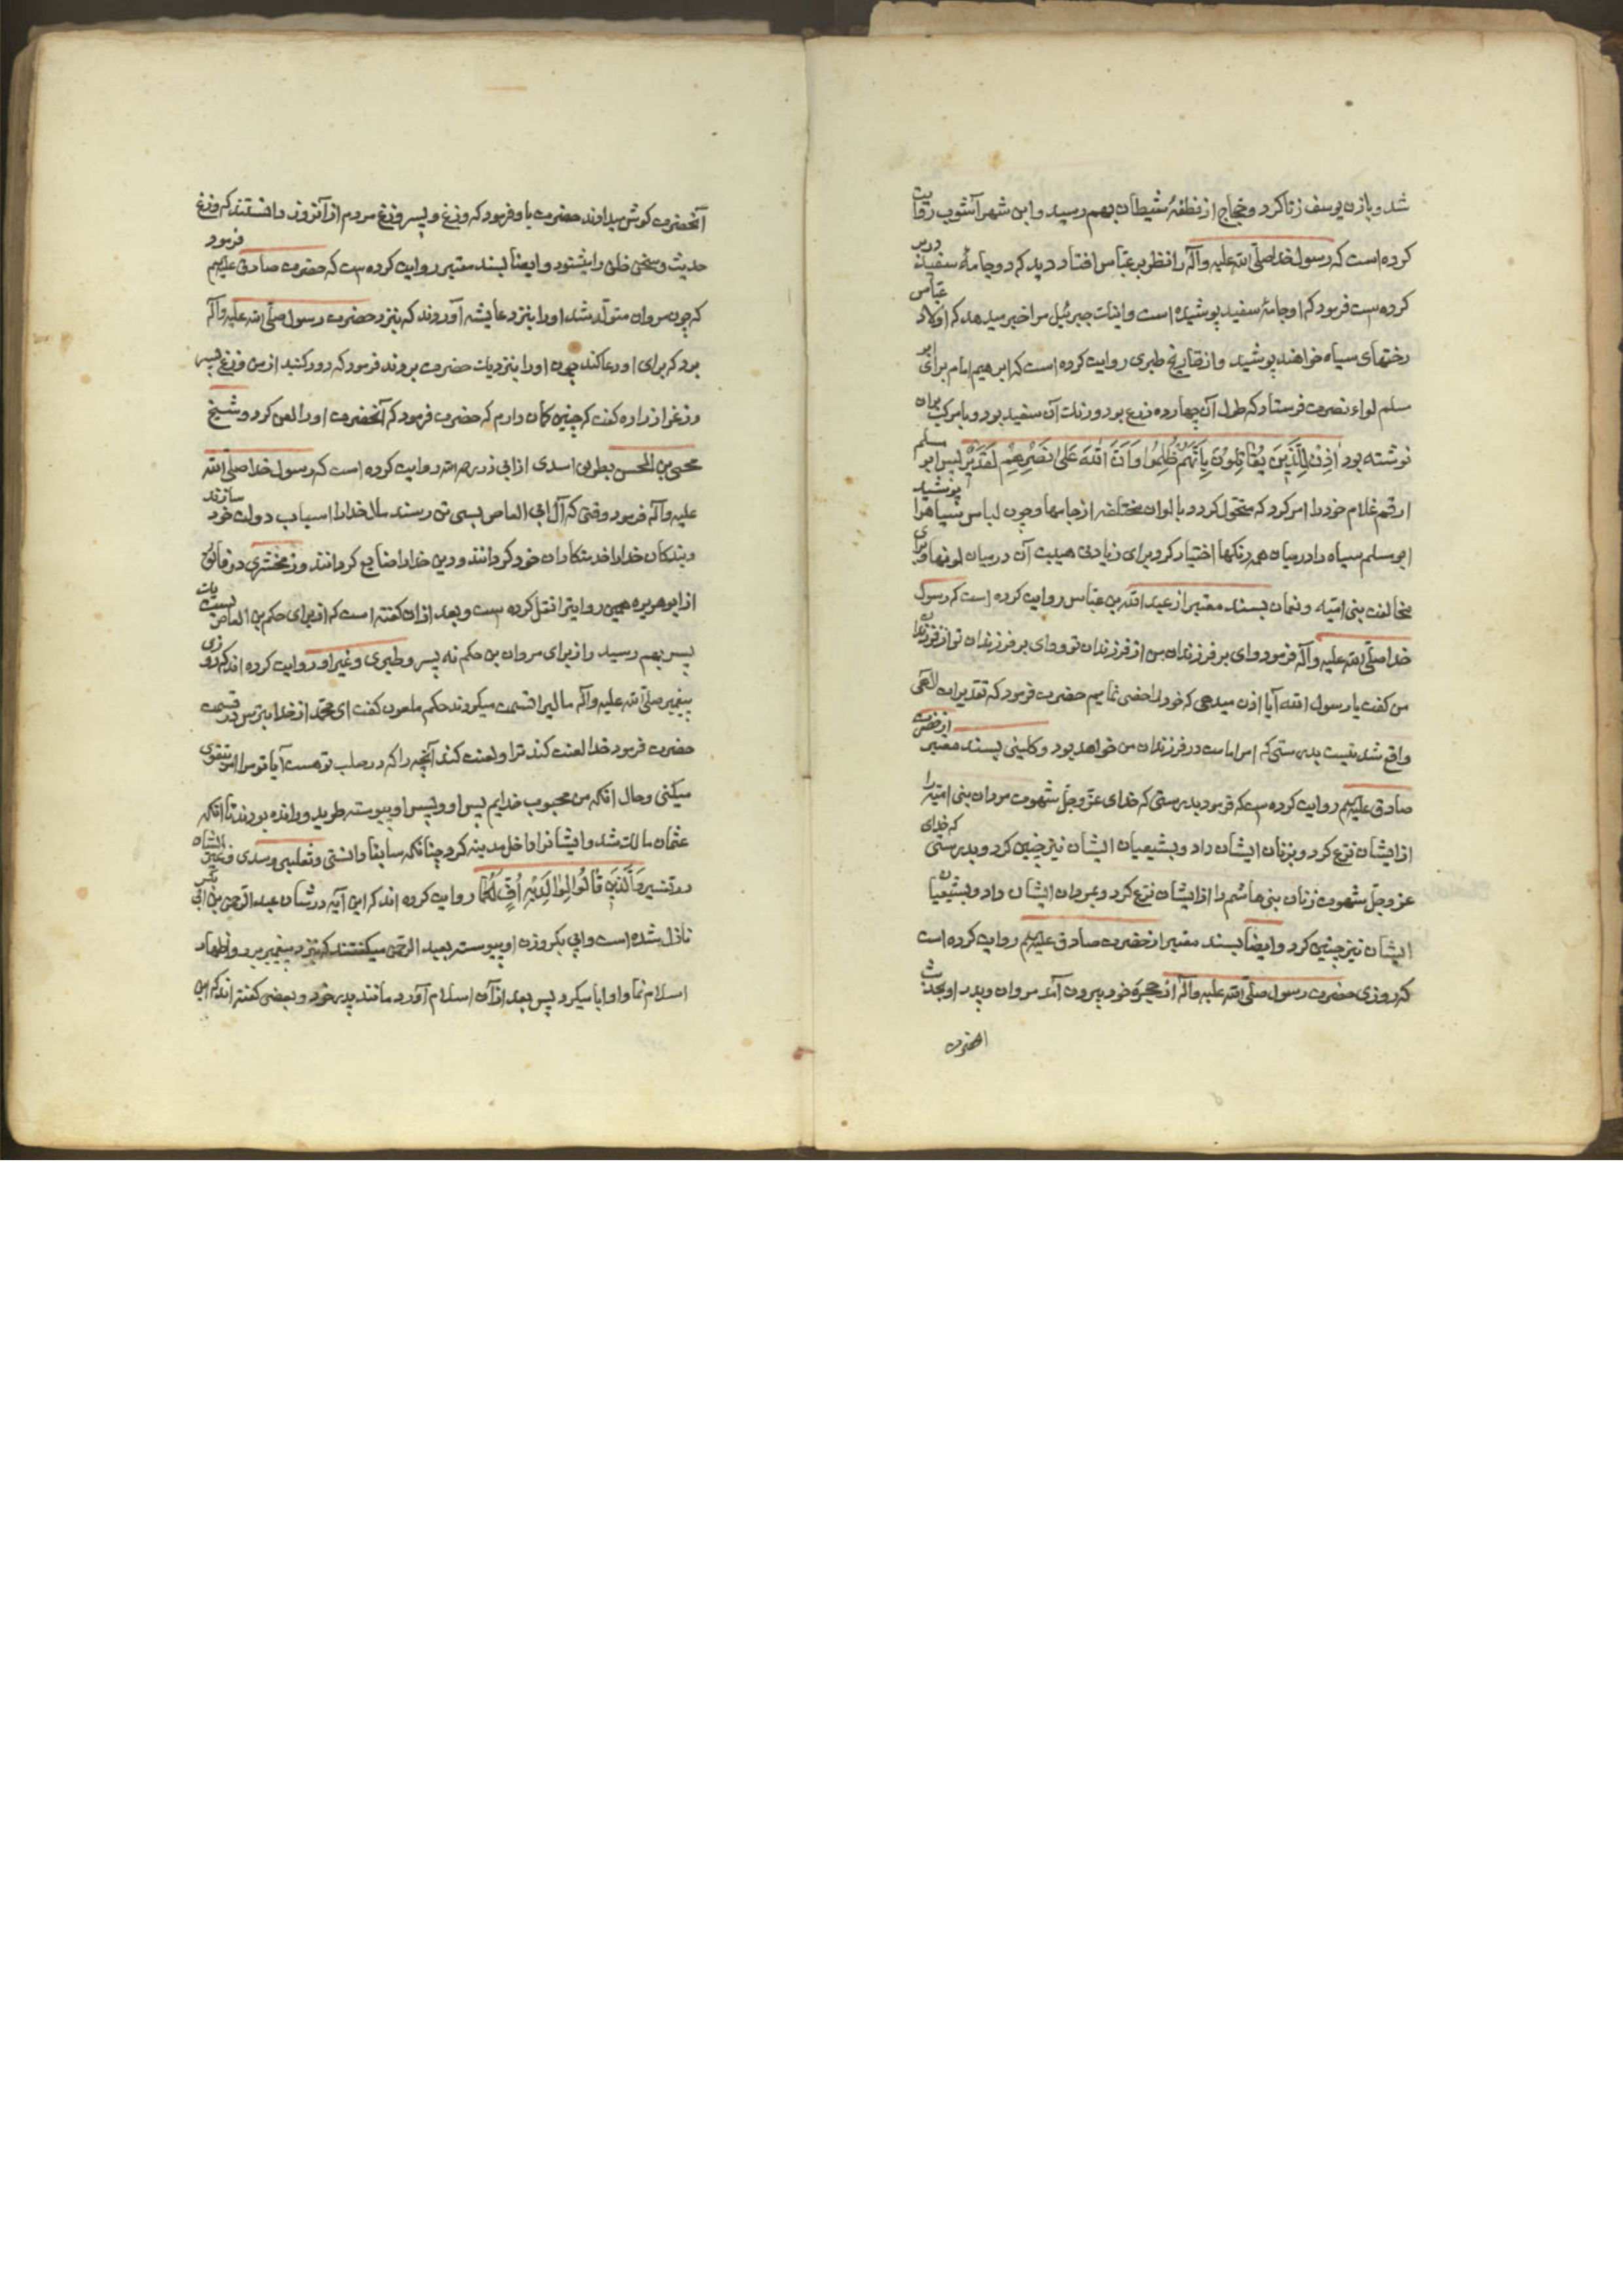 شد و بازن یوسف زنا کرد و حجاج از نطفهٔ شیطان بهم رسید و ابن شهر آشوب روایت
کرده است که رسول خدا صلی الله علیه وآله را نظر بر عباس افتاد دید که دو جامهٔ سفید در بر
کرده است فرمود که او جامهٔ سفید پوشیده است و اینک جبرئیل مرا خبر میدهد که اولاد عباس
رختهای سیاه خواهند پوشید و از تاریخ طبری روایت کرده است که ابرهیم امام برای ابو
مسلم لواء نصرت فرستاد که طول آن چهارده ذرع بود و رنک آن سفید بود و با مرکب بران
نوشته بود اُذِنَ لِلَّذِینَ یُقَاتِلُونَ بِاَنَّهُمْ ظُلِمُوا وَاَنَّ اللهَ عَلَی نَصْرِهِمْ لَقَدِیرٌ پس ابو مسلم
ارقم غلام خود را امر کرد که متحول کردد بالوان مختلفه از جامها و چون لباس سیاه را پوشید
ابو مسلم سیاه را در میان همه رنکها اختیار کرد برای زیادتی هیبت آن در میان لونها و برای
مخالفت بنی امیّه و نعمانی بسند معتبر از عبد الله بن عباس روایت کرده است که رسول
خدا صلی الله علیه وآله فرمود وای بر فرزندان من از فرزندان تو و وای بر فرزندان تو از فرزندان
من کفت یا رسول الله آیا اذن میدهی که خود را خصی نمایم حضرت فرمود که تقدیرات الهی
واقع شدنیست بدرستی که امر امامت در فرزندان من خواهد بود و کلینی بسند معتبر از حضرت
صادق علیهم روایت کرده است که فرمود بدرستی که خدای عزّ وجلّ شهوت مردان بنی امیّه را
از ایشان نزع کرد و بزنان ایشان داد و بشیعیان ایشان نیز چنین کرد و بدرستی که خدای
عزّ وجلّ شهوت زنان بنی هاشم را از ایشان نزع کرد و بمردان ایشان داد و بشیعیان
ایشان نیز چنین کرد و ایضا بسند معتبر از حضرت صادق علیهم روایت کرده است
که روزی حضرت رسول صلی الله علیه وآله از حجرهٔ خود بیرون آمد مروان و پدر او بحدیث
آنحضرت کوش میدادند حضرت باو فرمود که وزغ و پسر وزغ مردم از آنروز دانستند که وزغ
حدیث و سخن خلق را میشنود و ایضا بسند معتبر روایت کرده است که حضرت صادق علیهم فرمود
که چون مروان متولد شد او را بنزد عایشه آوردند که بنزد حضرت رسول صلی الله علیه وآله
برد که برای او دعا کند چون او را بنزدیک حضرت بردند فرمود که دور کنید از من وزغ پسر
وزغ را زراره کفت که چنین کمان دارم که حضرت فرمود که آنحضرت او را لعن کرد و شیخ
یحیی بن الحسن بطریق اسدی از ابی ذر رحمه الله روایت کرده است که رسول خدا صلی الله
علیه وآله فرمود وقتی که آل ابی العاص بسی تن رسند مال خدا را اسباب دولت خود سازند
و بندکان خدا را خدمتکاران خود کردانند و دین خدا را ضایع کردانند و زمخشری در فائق
از ابو هریره همین روایت را نقل کرده است و بعد از ان کفته است که از برای حکم بن العاص بیست و یک
پسر بهم رسید و از برای مروان بن حکم نه پسر و طبری و غیر او روایت کرده اند که روزی
پیغمبر صلی الله علیه وآله مالیرا قسمت میکردند حکم ملعون کفت ای محمد از خدا بترس در قسمت
حضرت فرمود خدا لعنت کند ترا و لعنت کند آنچه را که در صلب تو هست آیا تو مرا امر بتقوی
میکنی و حال آنکه من محبوب خدایم پس او و پسر او پیوسته طرید و رانده بودند تا آنکه
عثمان مالک شد و ایشانرا داخل مدینه کرد چنانکه سابقا دانستی و ثعلبی و سدی و غیر ایشان
در تفسیر وَالَّذِی قَالُوا لِوَالِدَیْهِ اُفٍّ لَکُمَا روایت کرده اند که این آیه در شان عبد الرحمن بن ابی بکر
نازل شده است و ابی بکر و زن او پیوسته بعبد الرحمن میکفتند که بنزد پیغمبر برو و اظهار
اسلام نما و او ابا میکرد پس بعد از آن اسلام آورد مانند پدر خود و بعضی کفته اند که این